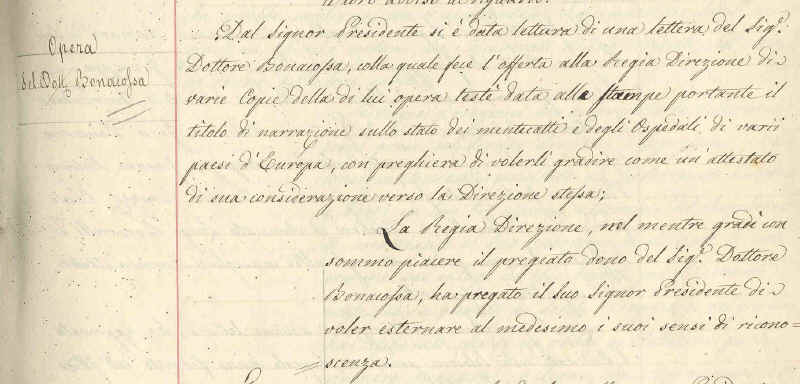 Opera
del Dott. Bonacossa
Dal Signor Presidente si è data lettura di una lettera del Sig.r
Dottore Bonacossa, colla quale fece l'offerta alla Regia Direzione di
varie Copie della di lui opera testè data alle stampe portante il
titolo di narrazione sullo stato dei mentecatti e degli Ospedali di varii
paesi d'Europa, con preghiera di volerli gradire come un'attestato
di sua considerazione verso la Direzione stessa;
La Regia Direzione, nel mentre gradì con
sommo piacere il pregiato dono del Sig.r Dottore
Bonacossa, ha pregato il suo Signor Presidente di
voler esternare al medesimo i suoi sensi di ricono-
scenza.